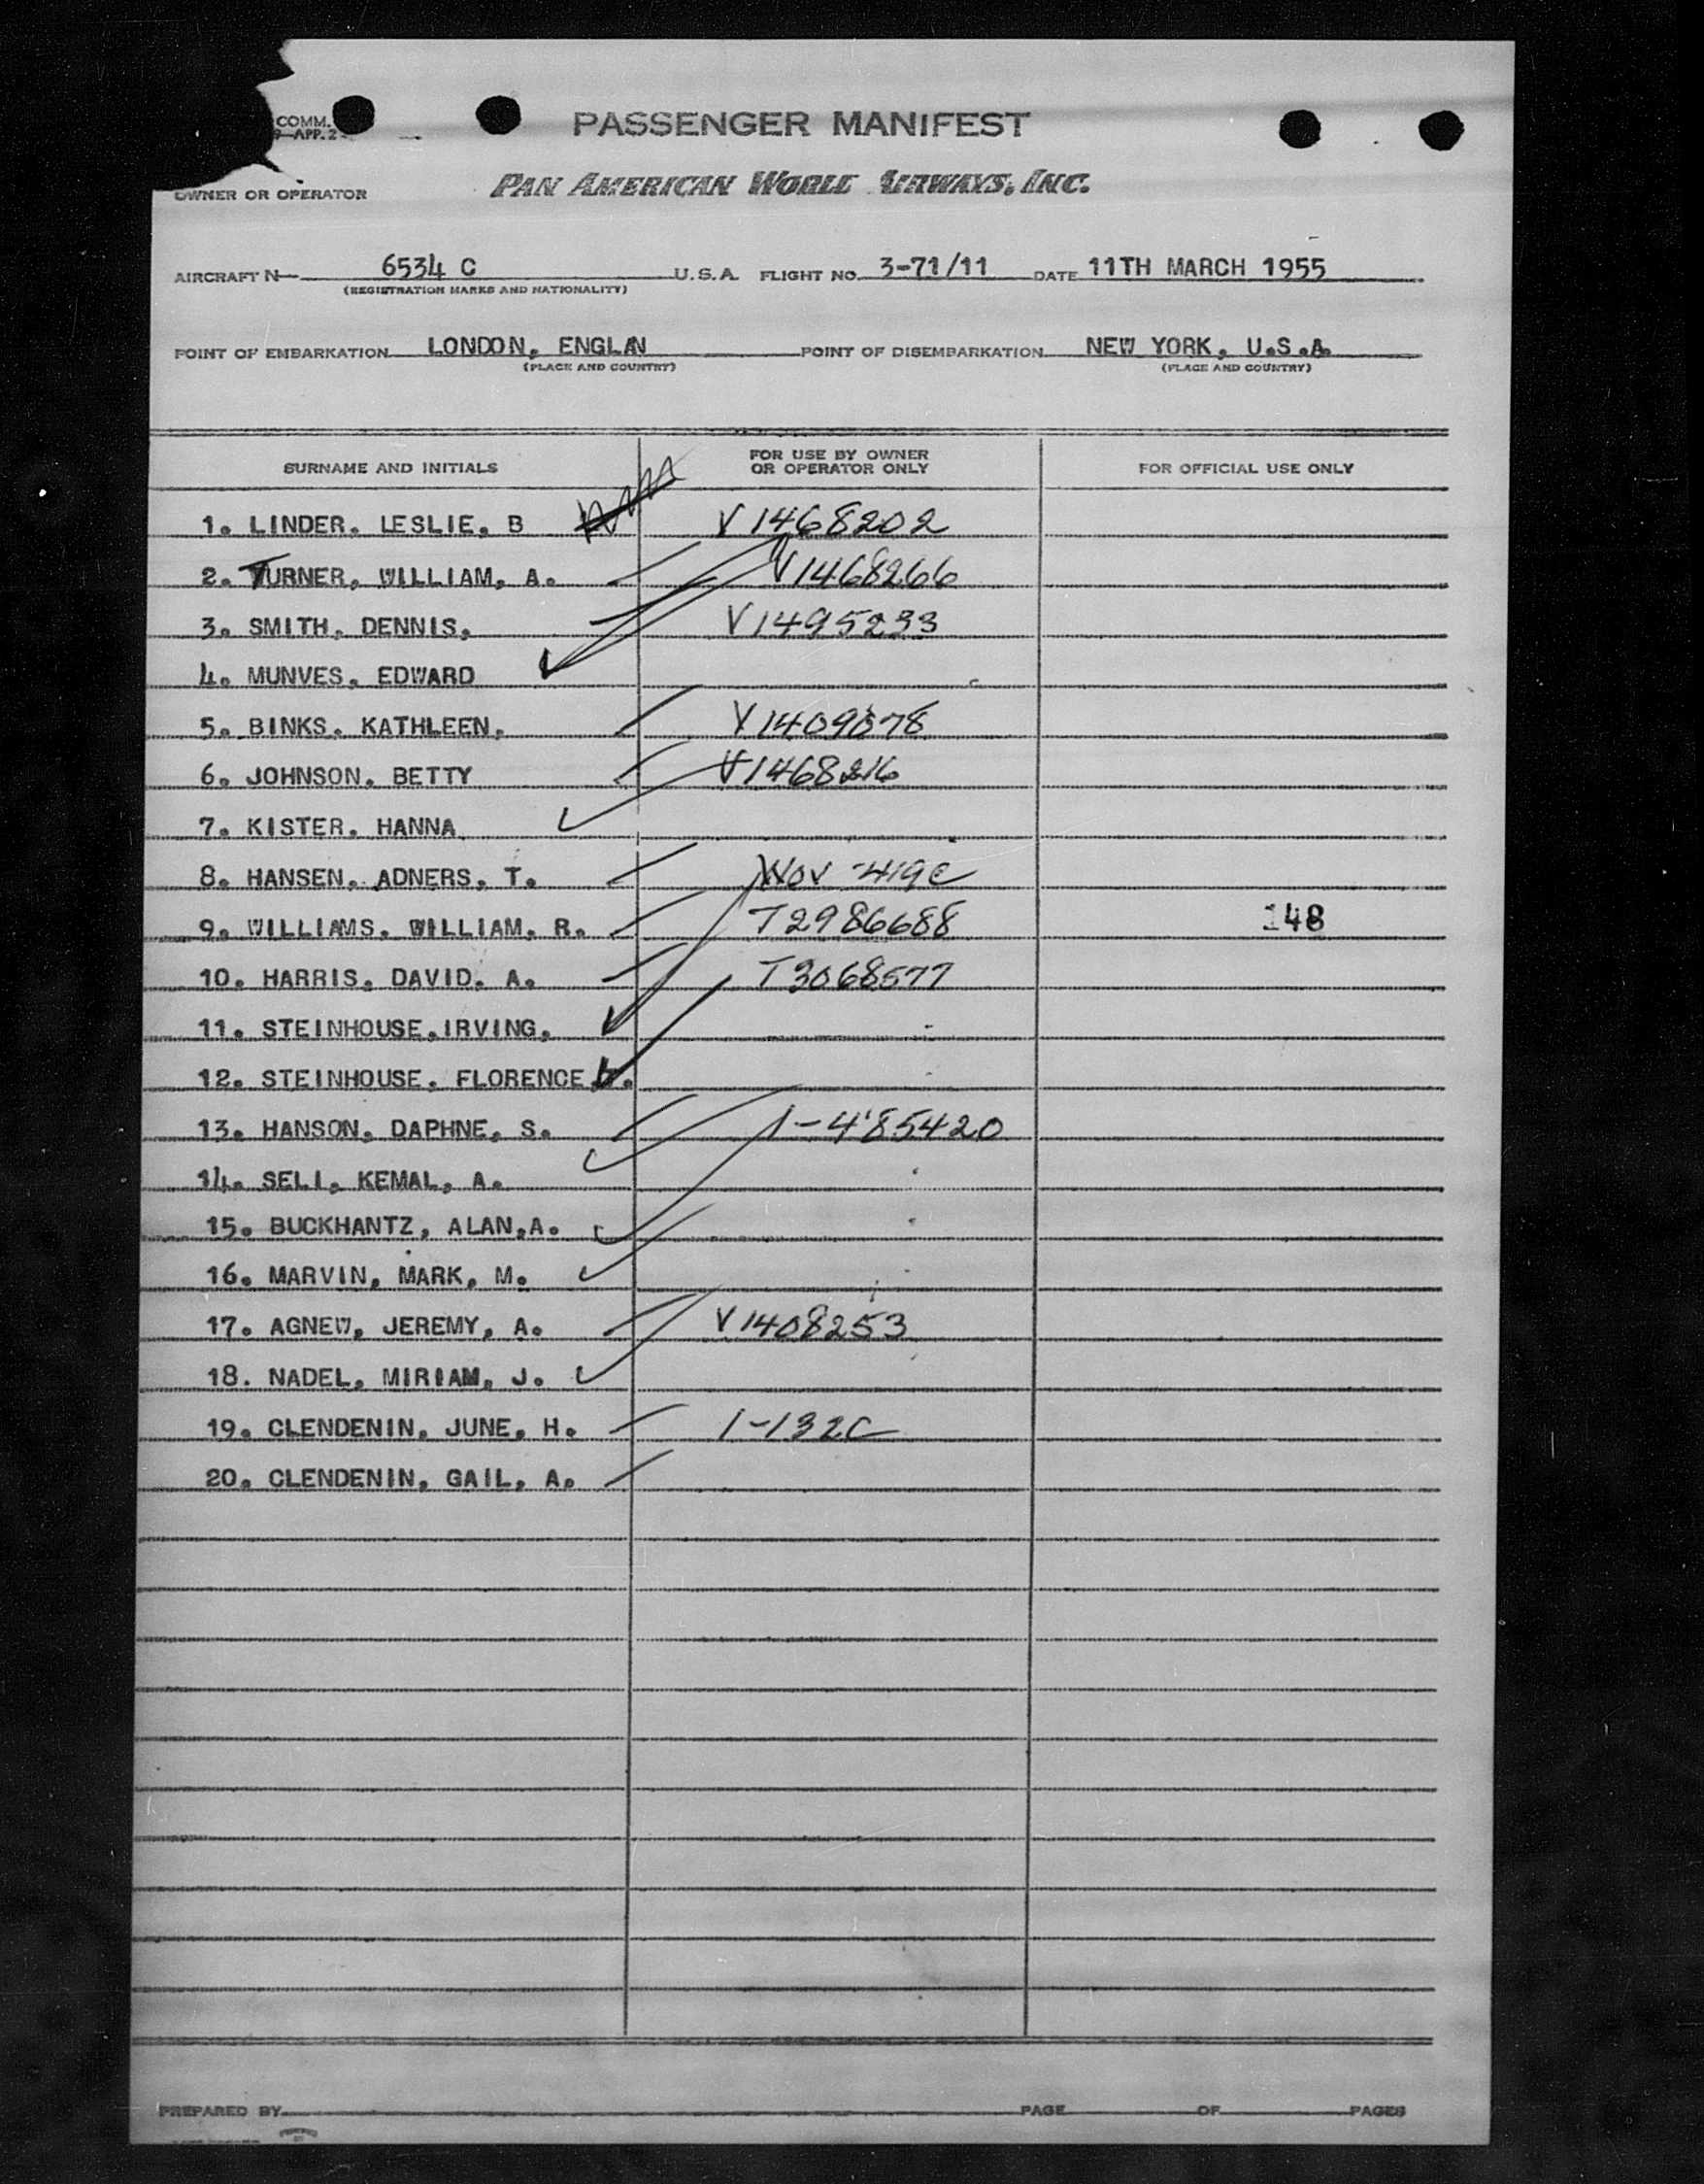 COMM.
9—APP. 2
PASSENGER MANIFEST
OWNER OR OPERATOR PAN AMERICAN WORLD AIRWAYS, INC.
AIRCRAFT N— 6534 C U.S.A. FLIGHT NO. 3-71/11 DATE 11TH MARCH 1955
(REGISTRATION MARKS AND NATIONALITY)
POINT OF EMBARKATION LONDON, ENGLAN POINT OF DISEMBARKATION NEW YORK, U.S.A.
(PLACE AND COUNTRY) (PLACE AND COUNTRY)
SURNAME AND INITIALS FOR USE BY OWNER OR OPERATOR ONLY FOR OFFICIAL USE ONLY
1. LINDER, LESLIE, B V1468202
2. TURNER, WILLIAM, A. V1468266
3. SMITH, DENNIS, V1495233
4. MUNVES, EDWARD
5. BINKS, KATHLEEN, V1409078
6. JOHNSON, BETTY V1468216
7. KISTER, HANNA
8. HANSEN, ADNERS, T.
9. WILLIAMS, WILLIAM, R. T2986688 148
10. HARRIS, DAVID, A. T3068577
11. STEINHOUSE, IRVING,
12. STEINHOUSE, FLORENCE
13. HANSON, DAPHNE, S. 1-485420
14. SELI, KEMAL, A.
15. BUCKHANTZ, ALAN,A.
16. MARVIN, MARK, M.
17. AGNEW, JEREMY, A. V1408253
18. NADEL, MIRIAM, J.
19. CLENDENIN, JUNE, H. 1-132C
20. CLENDENIN, GAIL, A.
PREPARED BY PAGE OF PAGES